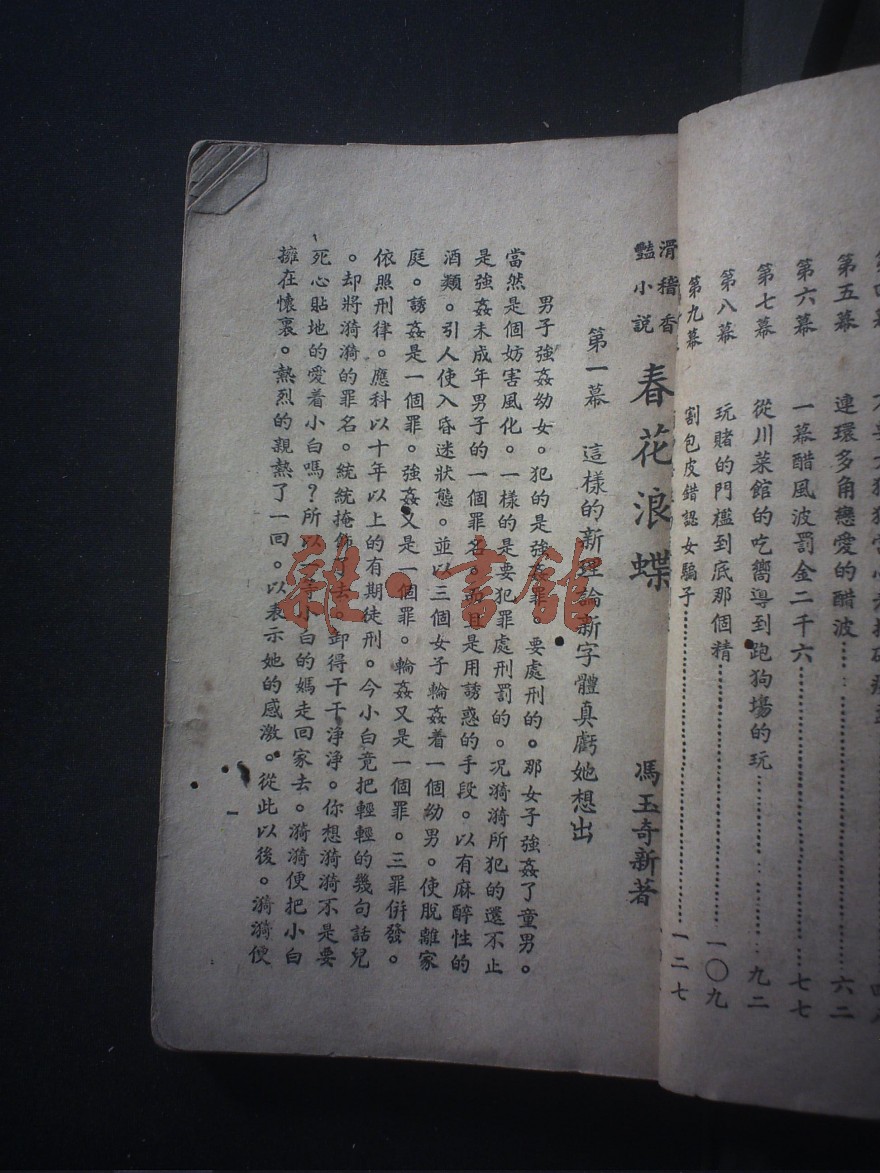 第五幕 連環多角戀愛的醋波……六二
第六幕 一幕醋風波罰金二千六……七七
第七幕 從川菜館的吃嚮導到跑狗場的玩……九二
第八幕 玩賭的門檻到底那個精……一〇九
第九幕 割包皮錯認女騙子……一二七
滑稽香豔小說 春花浪蝶 馮玉奇新著
第一幕 這樣的新理論新字體真虧她想出
男子強姦幼女。犯的是強姦罪。要處刑的。那女子強姦了童男。
當然是個妨害風化。一樣的是要犯罪處刑罰的。况漪漪所犯的還不止
是強姦未成年男子的一個罪名。而且是用誘惑的手段。以有麻醉性的
酒類。引人使入昏迷狀態。並以三個女子輪姦着一個幼男。使脫離家
庭。誘姦是一個罪。強姦又是一個罪。輪姦又是一個罪。三罪併發。
依照刑律。應科以十年以上的有期徒刑。今小白竟把輕輕的幾句話兒
。却將漪漪的罪名。統統掩飾了去。卸得干干淨淨。你想漪漪不是要
死心貼地的愛着小白嗎?所以一等小白的媽走回家去。漪漪便把小白
擁在懷裏。熱烈的親熱了一回。以表示她的感激。從此以後。漪漪便
一
雜·書館